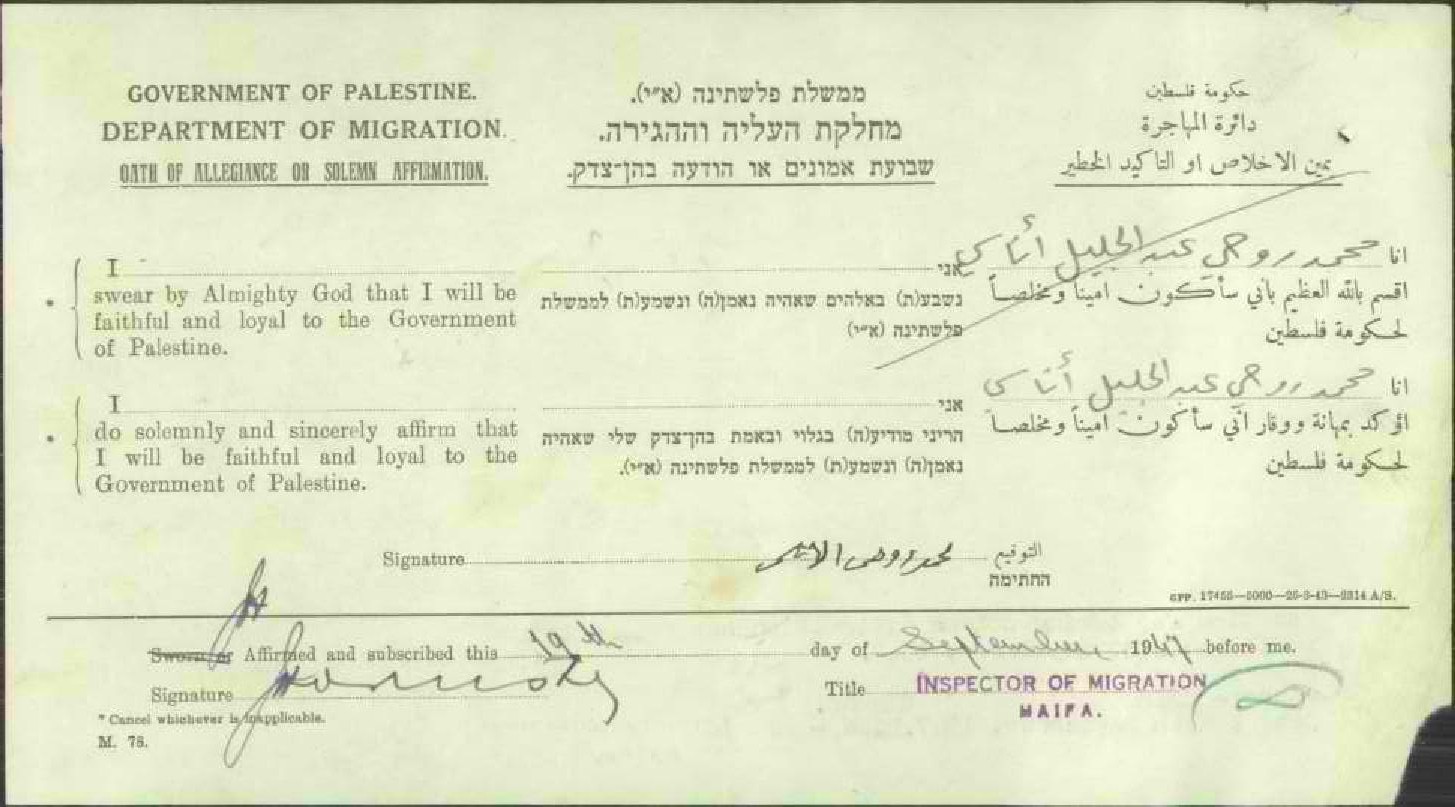 GOVERNMENT OF PALESTINE.
DEPARTMENT OF MIGRATION.
OATH OF ALLEGIANCE OR SOLEMN AFFIRMATION.
ממשלת פלשתינה (א״י).
מחלקת העליה וההגירה.
שבועת אמונים או הודעה בהן־צדק.
حكومة فلسطين
دائرة المهاجرة
يمين الاخلاص او التاكيد الخطير
I
swear by Almighty God that I will be
faithful and loyal to the Government
of Palestine.
אני
נשבע(ת) באלהים שאהיה נאמן(ה) ונשמע(ת) לממשלת
פלשתינה (א״י)
انا محمد روحي عبد الجليل
اقسم بالله العظيم بأني سأكون اميناً ومخلصاً
لحكومة فلسطين
I
do solemnly and sincerely affirm that
I will be faithful and loyal to the
Government of Palestine.
אני
הריני מודיע(ה) בגלוי ובאמת בהן־צדק שלי שאהיה
נאמן(ה) ונשמע(ת) לממשלת פלשתינה (א״י).
انا محمد روحي عبد الجليل
اؤكد بمهانة ووقار اني سأكون اميناً ومخلصاً
لحكومة فلسطين
Signature محمد روحي التوقيع
החתימה
GPP. 17455—5000—26-3-43—2314 A/S.
Sworn or Affirmed and subscribed this 19th day of September 1947 before me.
Signature Title INSPECTOR OF MIGRATION
HAIFA.
* Cancel whichever is inapplicable.
M. 78.